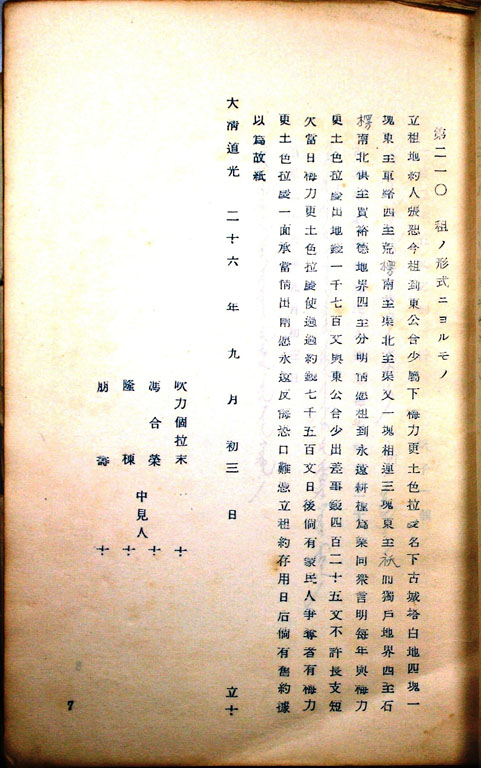 第二一〇　租ノ形式ニヨルモノ
立租地約人張恕今租到東公合少屬下梅力更土色拉慶名下古城塔白地四塊一
塊東至車路四至荒楞南至渠北至渠又一塊相連三塊東至祇們獨戶地界四至石
楞南北俱至買裕德地界四至分明情愿租到永遠耕種為業同衆言明每年與梅力
更土色拉慶出地錢一千七百文與東公合少出差事錢四百二十五文不許長支短
欠當日梅力更土色拉慶使過過約錢七千五百文日後倘有蒙民人爭奪者有梅力
更土色拉慶一面承當情出兩愿永遠反悔恐口難憑立租約存用日后倘有舊約據
以為故紙
大清道光　二十六年九月初三日　立十
吹力個拉木　十
馮合榮　十
隆棟　中見人　十
肋壽　十
7